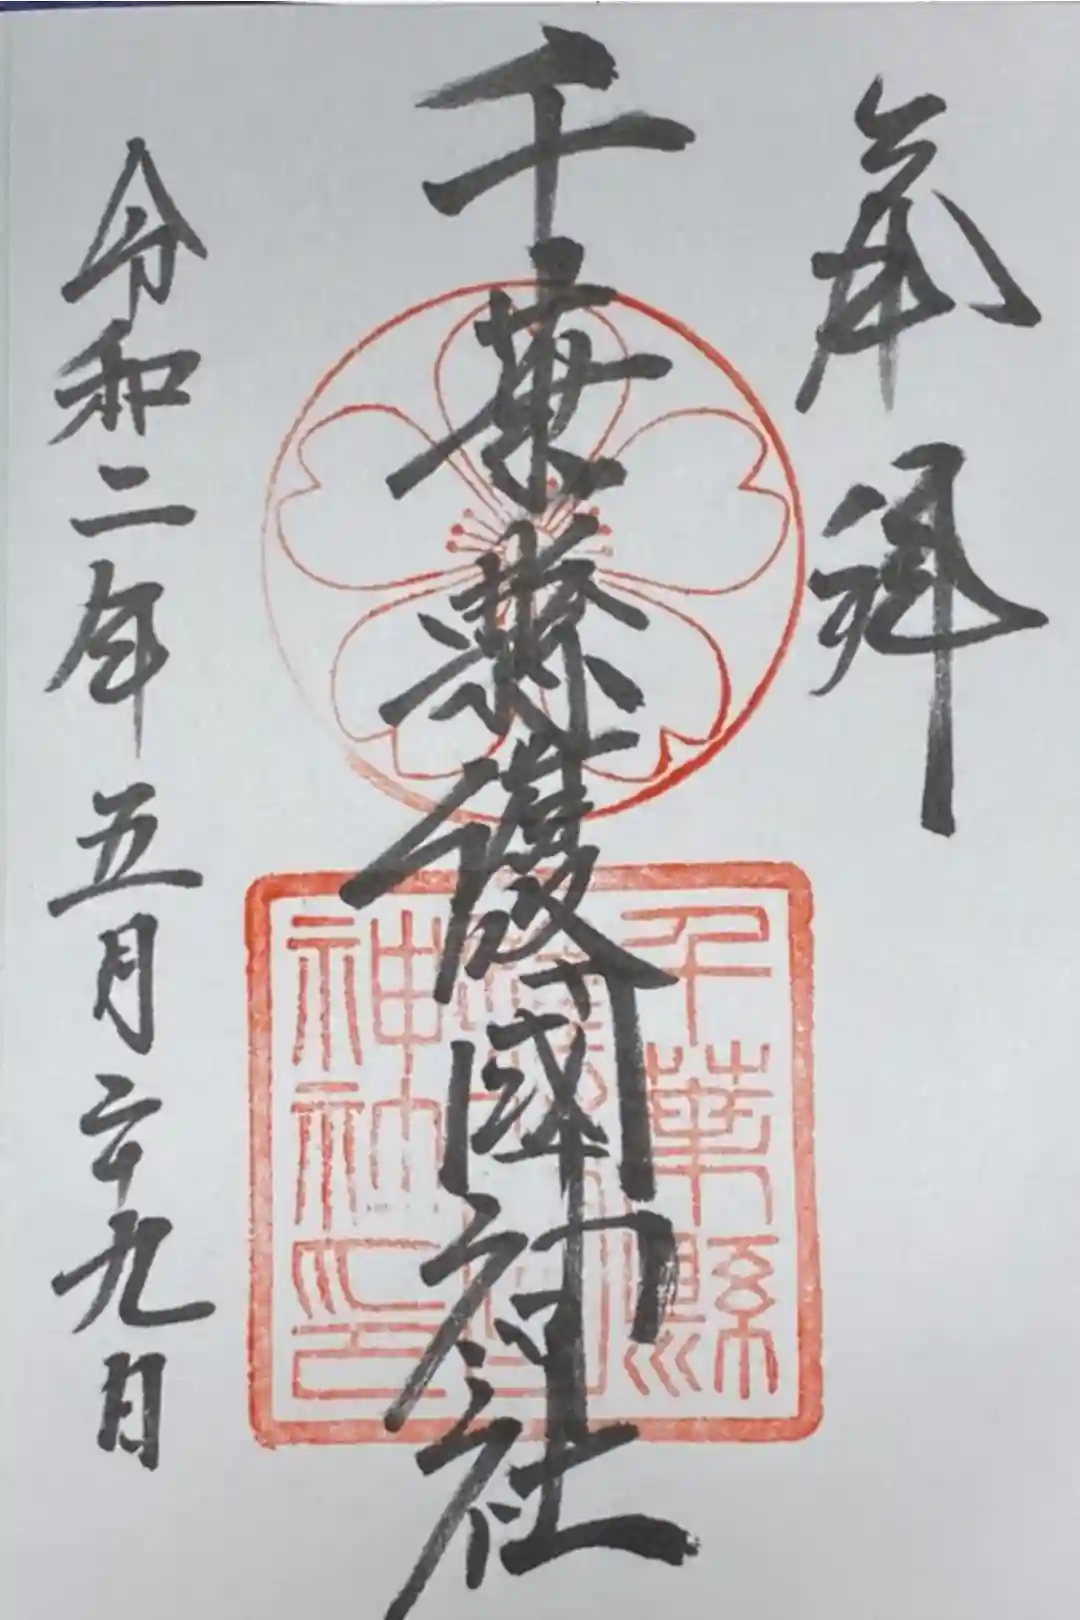 奉拝
千葉縣護國神社
千葉縣護國神社印
令和二年五月二十九日